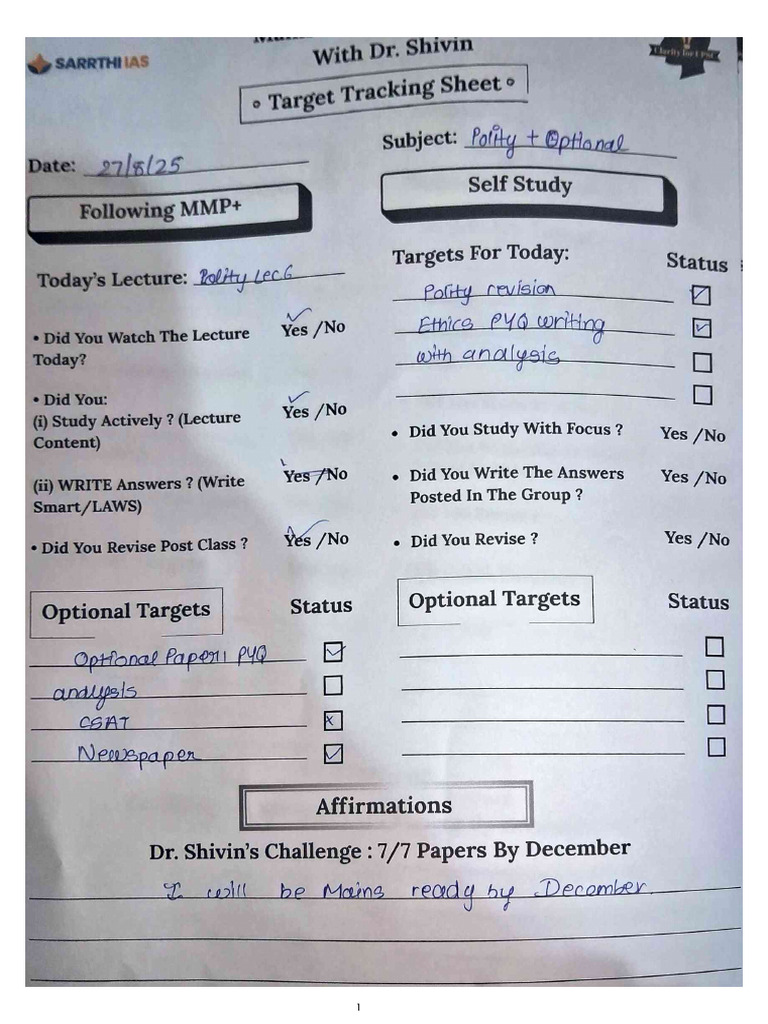 SARRTHI IAS
With Dr. Shivin
Target Tracking Sheet
Subject: Polity + Optional
Date: 27/8/25
Following MMP+
Self Study
Today's Lecture: Polity Lec 6
Targets For Today:
Status
Polity revision
Ethics PYQ writing
with analysis
• Did You Watch The Lecture Today?
Yes /No
• Did You:
(i) Study Actively ? (Lecture Content)
Yes /No
(ii) WRITE Answers ? (Write Smart/LAWS)
Yes /No
• Did You Revise Post Class ?
Yes /No
• Did You Study With Focus ?
Yes /No
• Did You Write The Answers Posted In The Group ?
Yes /No
• Did You Revise ?
Yes /No
Optional Targets
Status
Optional Paper 1 PYQ
analysis
CSAT
Newspaper
Optional Targets
Status
Affirmations
Dr. Shivin's Challenge : 7/7 Papers By December
I will be Mains ready by December
1